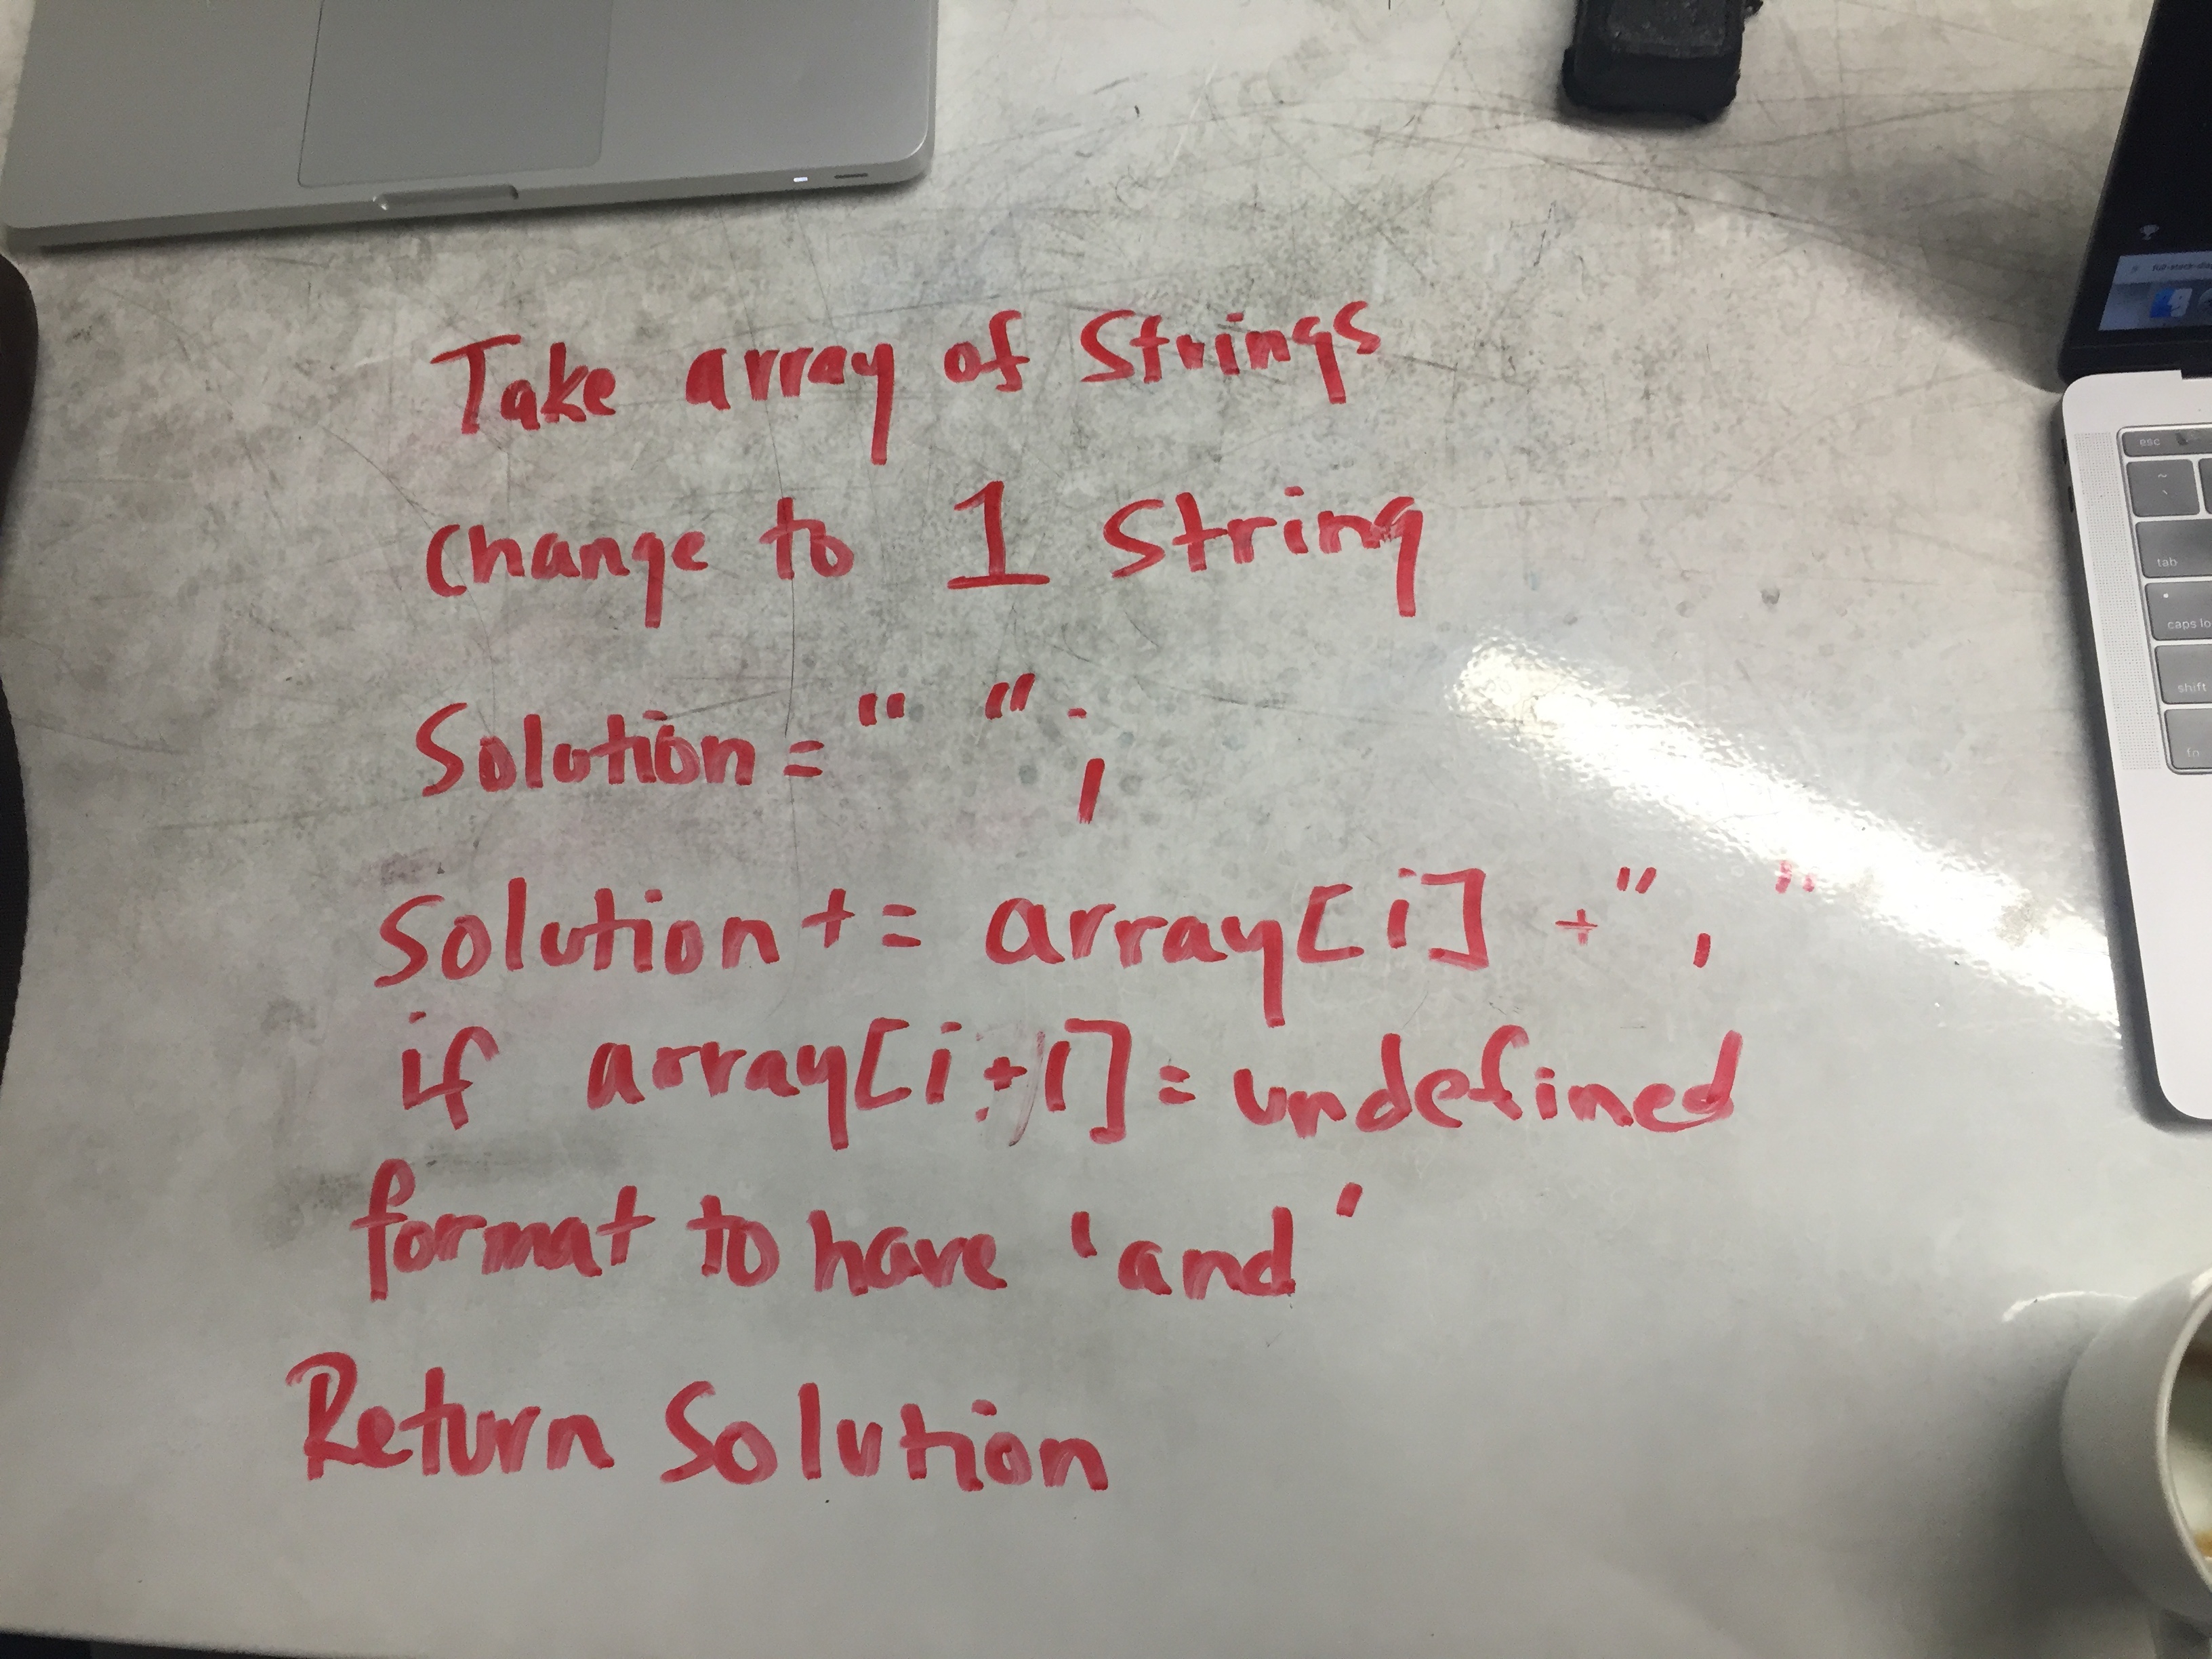 Take array of Strings
Change to 1 String
Solution = " ";
Solution += array[i] + ", "
if array[i+1] = undefined
format to have 'and'
Return Solution
esc
tab
caps lo
shift
fn